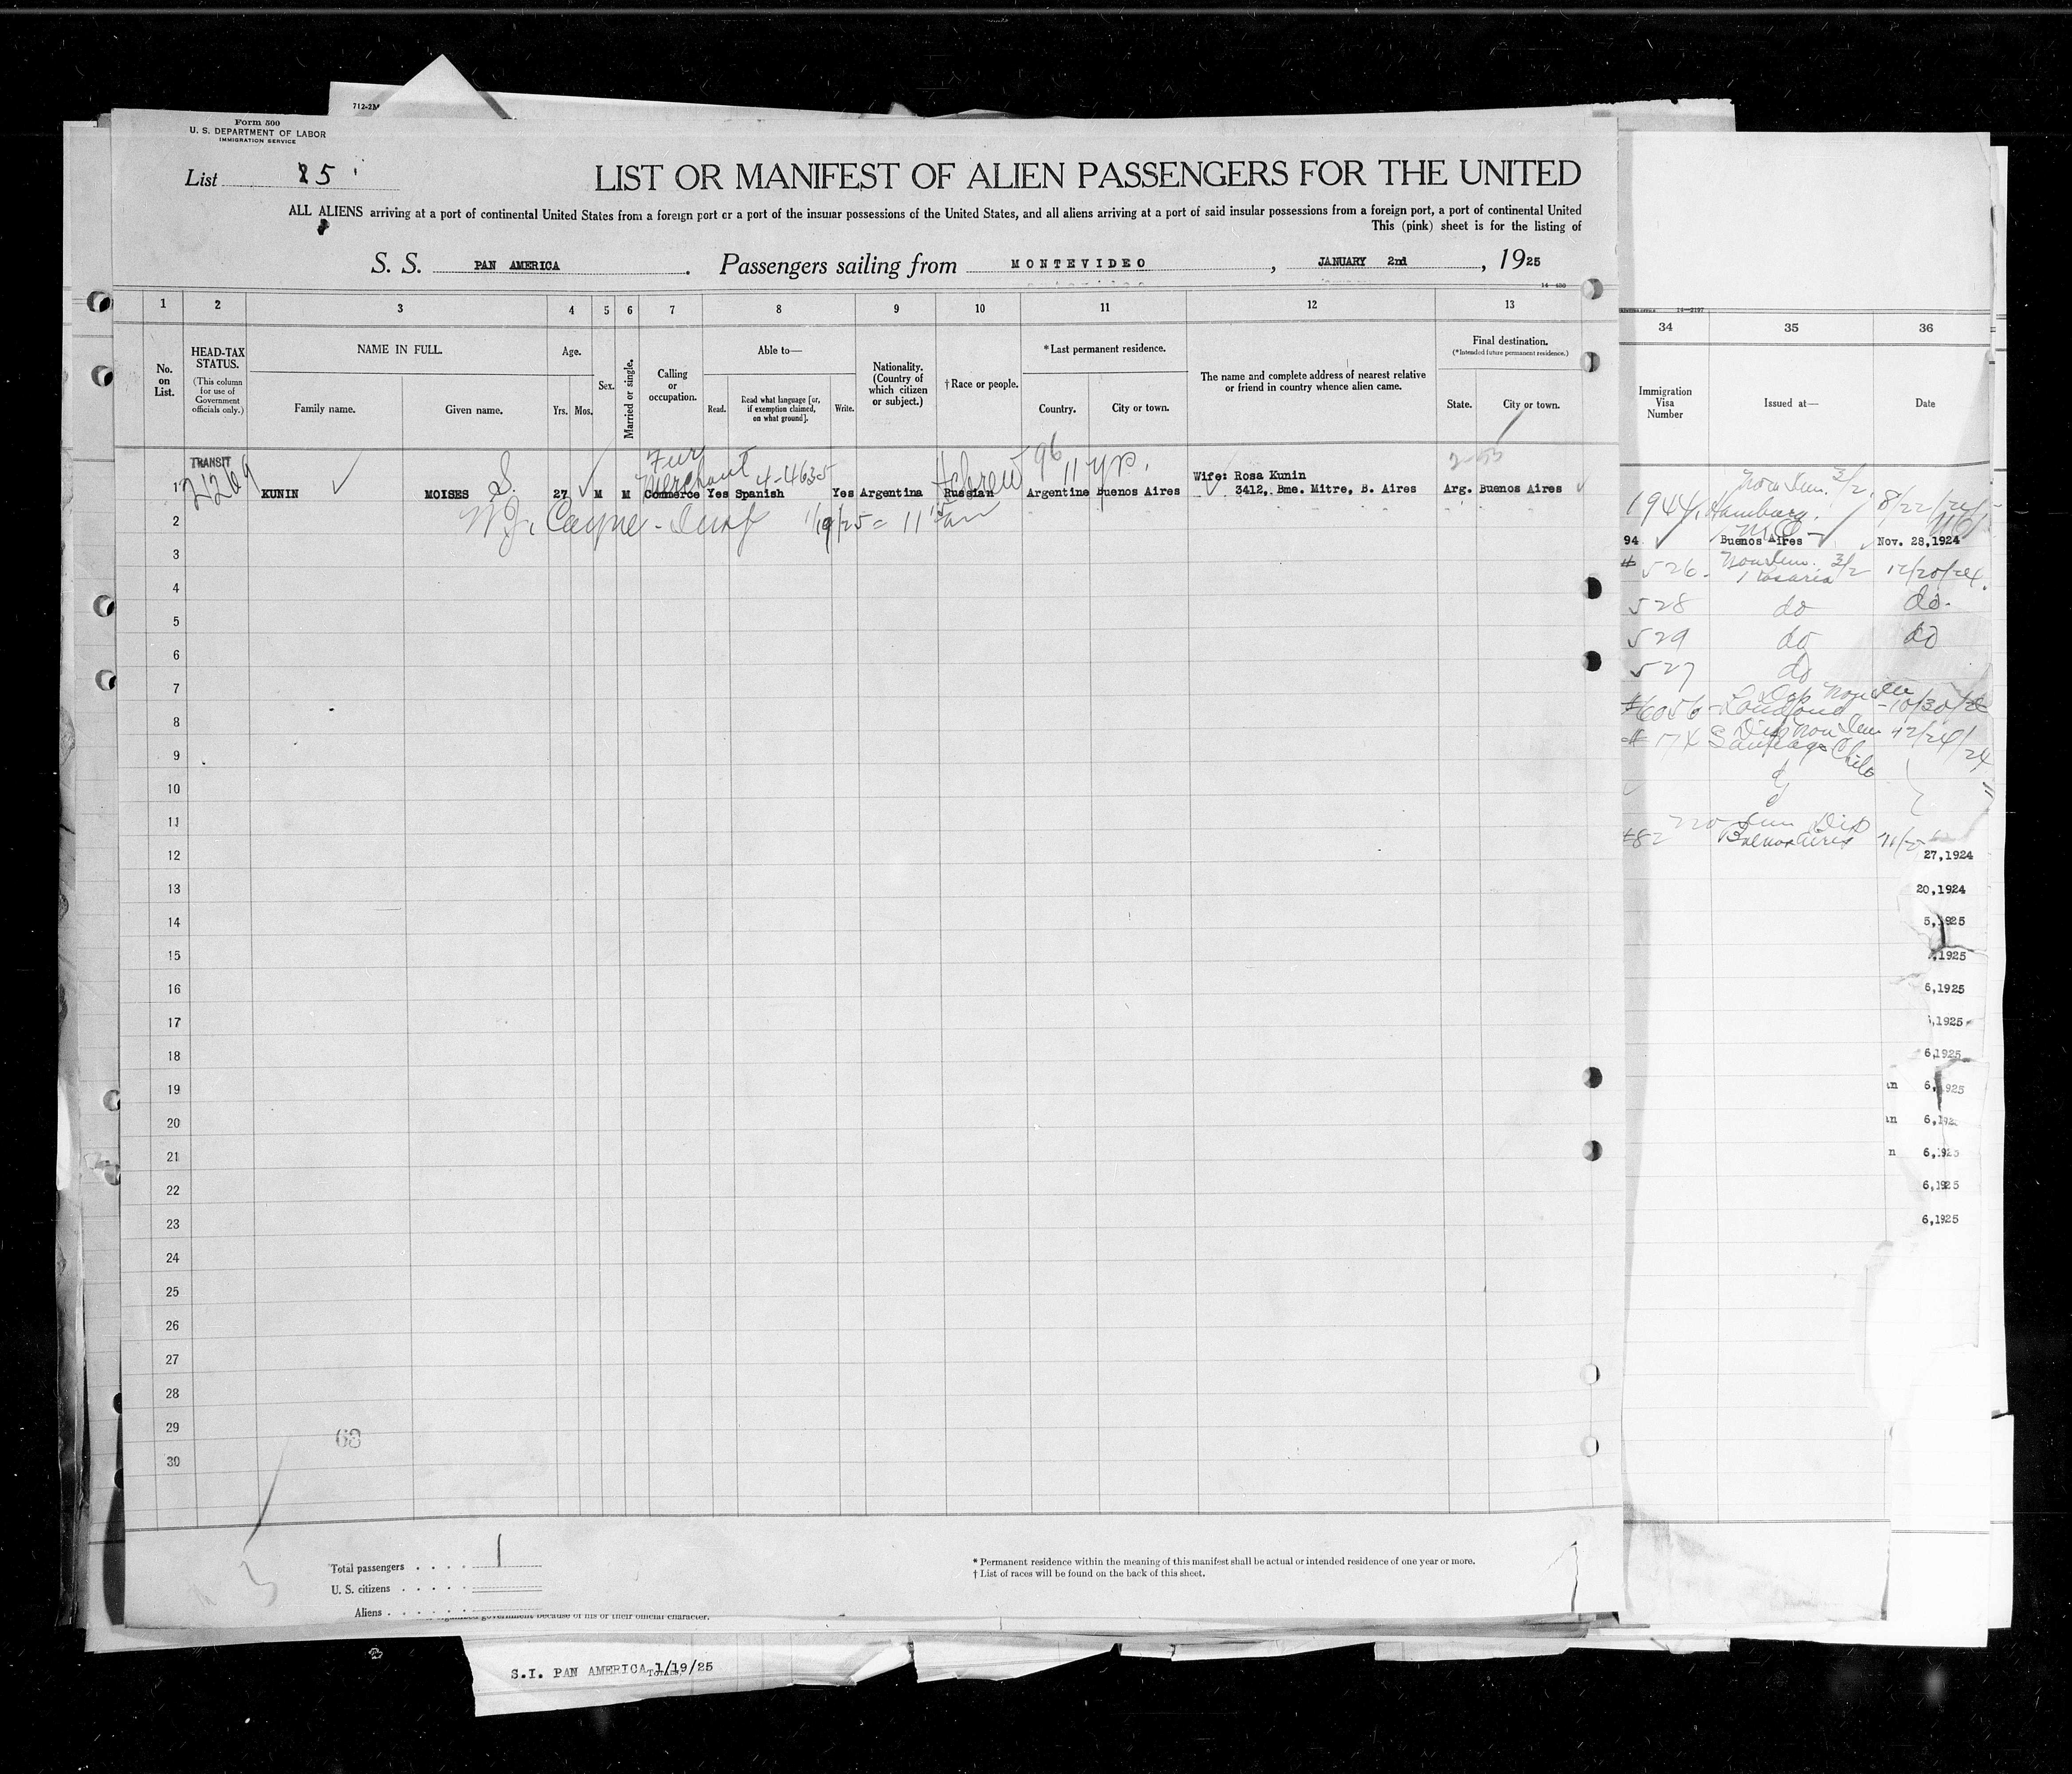 712-2M
Form 500
U. S. DEPARTMENT OF LABOR
IMMIGRATION SERVICE
List 25
LIST OR MANIFEST OF ALIEN PASSENGERS FOR THE UNITED
ALL ALIENS arriving at a port of continental United States from a foreign port or a port of the insular possessions of the United States, and all aliens arriving at a port of said insular possessions from a foreign port, a port of continental United
This (pink) sheet is for the listing of
S. S. PAN AMERICA. Passengers sailing from MONTEVIDEO, JANUARY 2nd, 1925
1 2 3 4 5 6 7 8 9 10 11 12 13
No. on List.
HEAD-TAX STATUS.
(This column for use of Government officials only.)
NAME IN FULL.
Family name. Given name.
Age.
Yrs. Mos.
Sex.
Married or single.
Calling or occupation.
Able to—
Read. Read what language [or, if exemption claimed, on what ground]. Write.
Nationality. (Country of which citizen or subject.)
†Race or people.
*Last permanent residence.
Country. City or town.
The name and complete address of nearest relative or friend in country whence alien came.
Final destination.
(*Intended future permanent residence.)
State. City or town.
TRANSIT
Fur Merchant 4-4635 Hebrew 96 11 yrs.
1 KUNIN MOISES S. 27 M M Commerce Yes Spanish Yes Argentina Russian Argentine Buenos Aires Wife: Rosa Kunin
3412, Bme. Mitre, B. Aires Arg. Buenos Aires
2 Cayne - 1/19/25 =
3
4
5
6
7
8
9
10
11
12
13
14
15
16
17
18
19
20
21
22
23
24
25
26
27
28
29
30
68
Total passengers . . . . 1
U. S. citizens . . . . .
Aliens . . . . . .
* Permanent residence within the meaning of this manifest shall be actual or intended residence of one year or more.
† List of races will be found on the back of this sheet.
government because of his or their official character.
S.I. PAN AMERICA 1/19/25
34 35 36
Immigration Visa Number
Issued at—
Date
1944 Hamburg 8/22/24
94 Buenos Aires Nov. 28,1924
# 526 Rosario 12/20/24.
528 do do.
529 do do
527 do
#6056 London 10/30/24
Santiago Chile 12/24/24
#82 Buenos Aires
27,1924
20,1924
5,1925
,1925
6,1925
,1925
6,1925
6,1925
6,192
6,1925
6,1925
6,1925